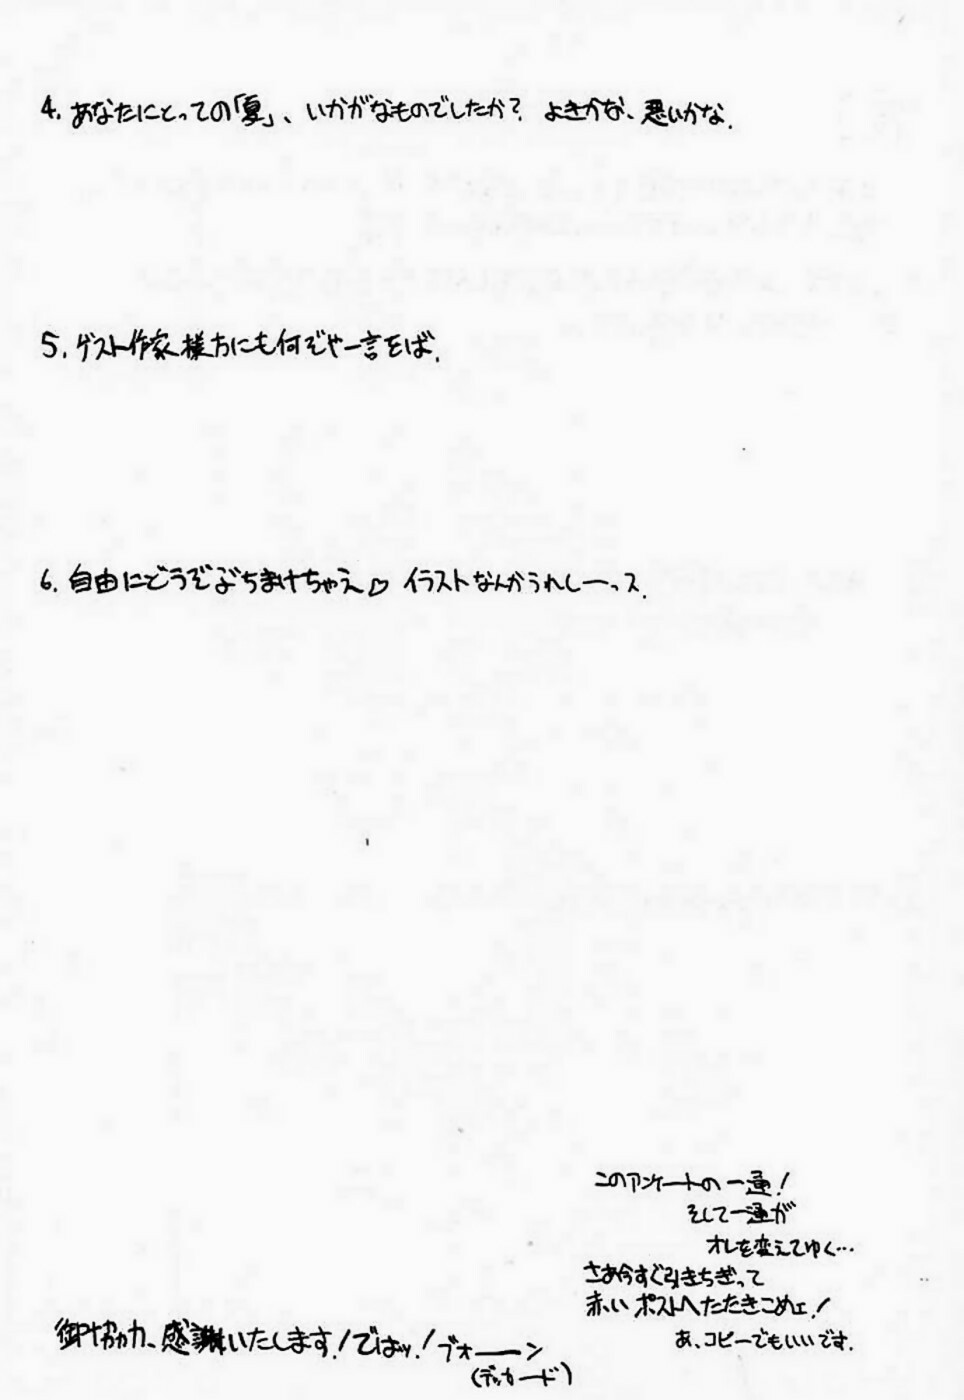 4. あなたにとっての「夏」、いかがなものでしたか? よきかな、悪いかな.
5. ゲスト作家様方にも何ぞや一言をば.
6. 自由にどうぞぶちまけちゃえ♡ イラストなんかうれしーっス.
このアンケートの一通!
そして一通が
オレを変えてゆく…
さあ今すぐ引きちぎって
赤い ポストへたたきこめェ!
あ、コピーでもいいです.
御協力、感謝いたします!ではッ! ブォーーン
(デッカード)